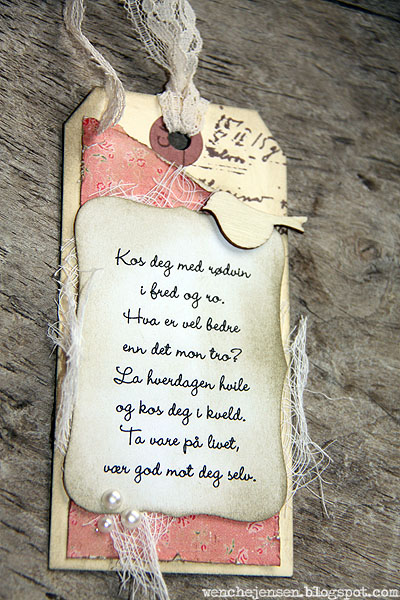 Kos deg med rødvin
i fred og ro.
Hva er vel bedre
enn det mon tro?
La hverdagen hvile
og kos deg i kveld.
Ta vare på livet,
vær god mot deg selv.
wenchejensen.blogspot.com